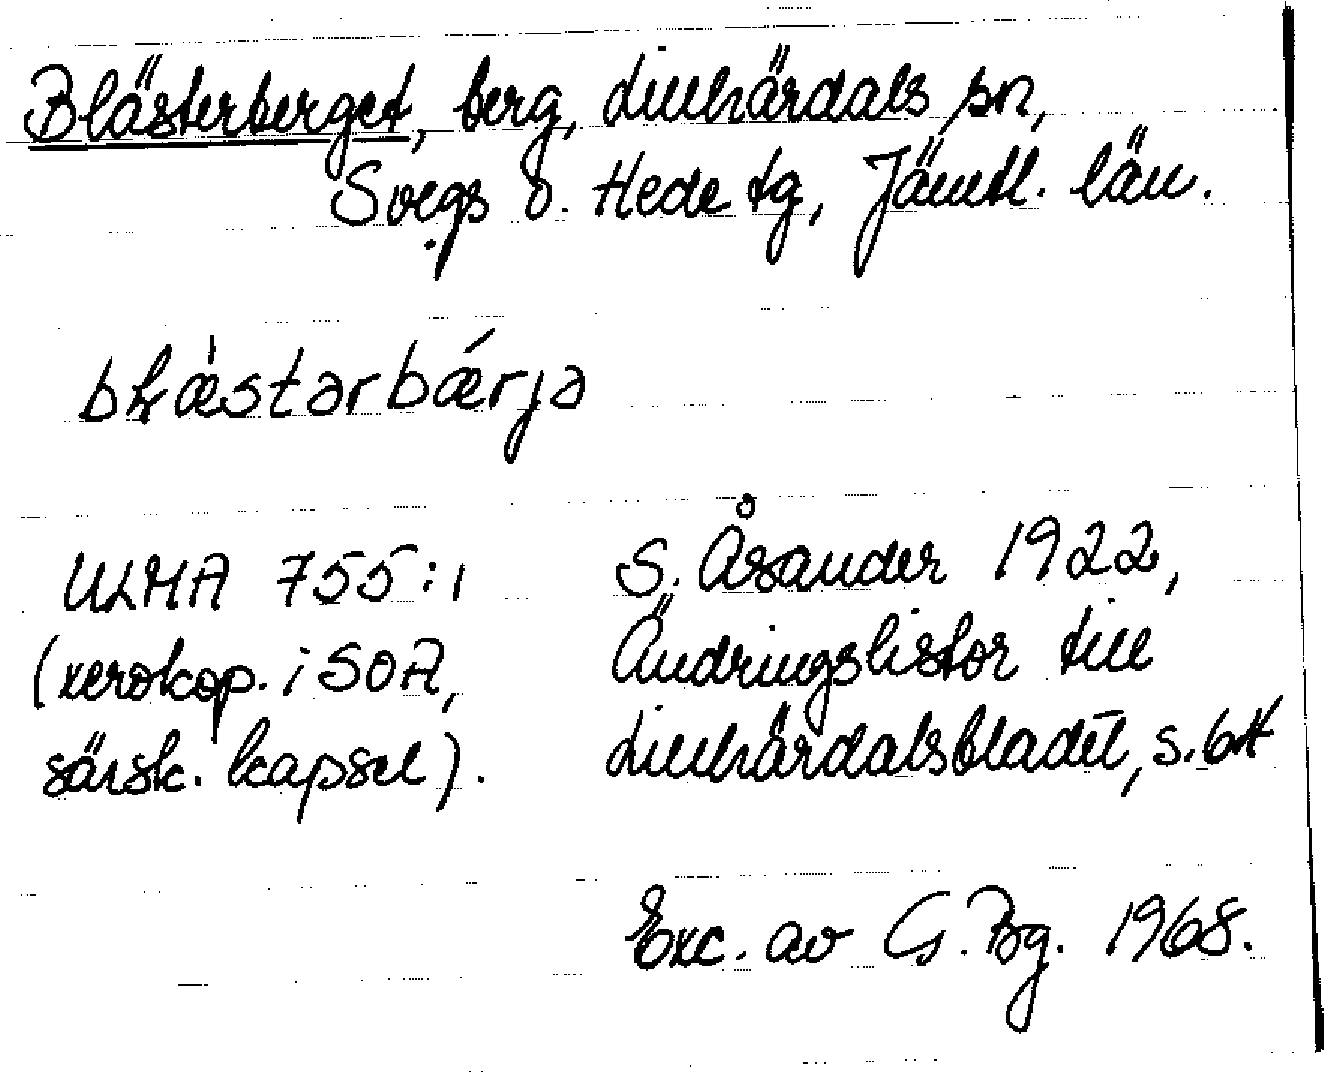 Blästerberget, berg, Lillhärdals sn,
Svegs o. Hede tg, Jämtl. län.
bḷæ̀stərbǽrjə
ULMA 755:1
(xerokop. i SOA,
särsk. kapsel).
S. Åsander 1922,
Ändringslistor till
Lillhärdalsbladet, s. 64
Exc. av G. Bg. 1968.